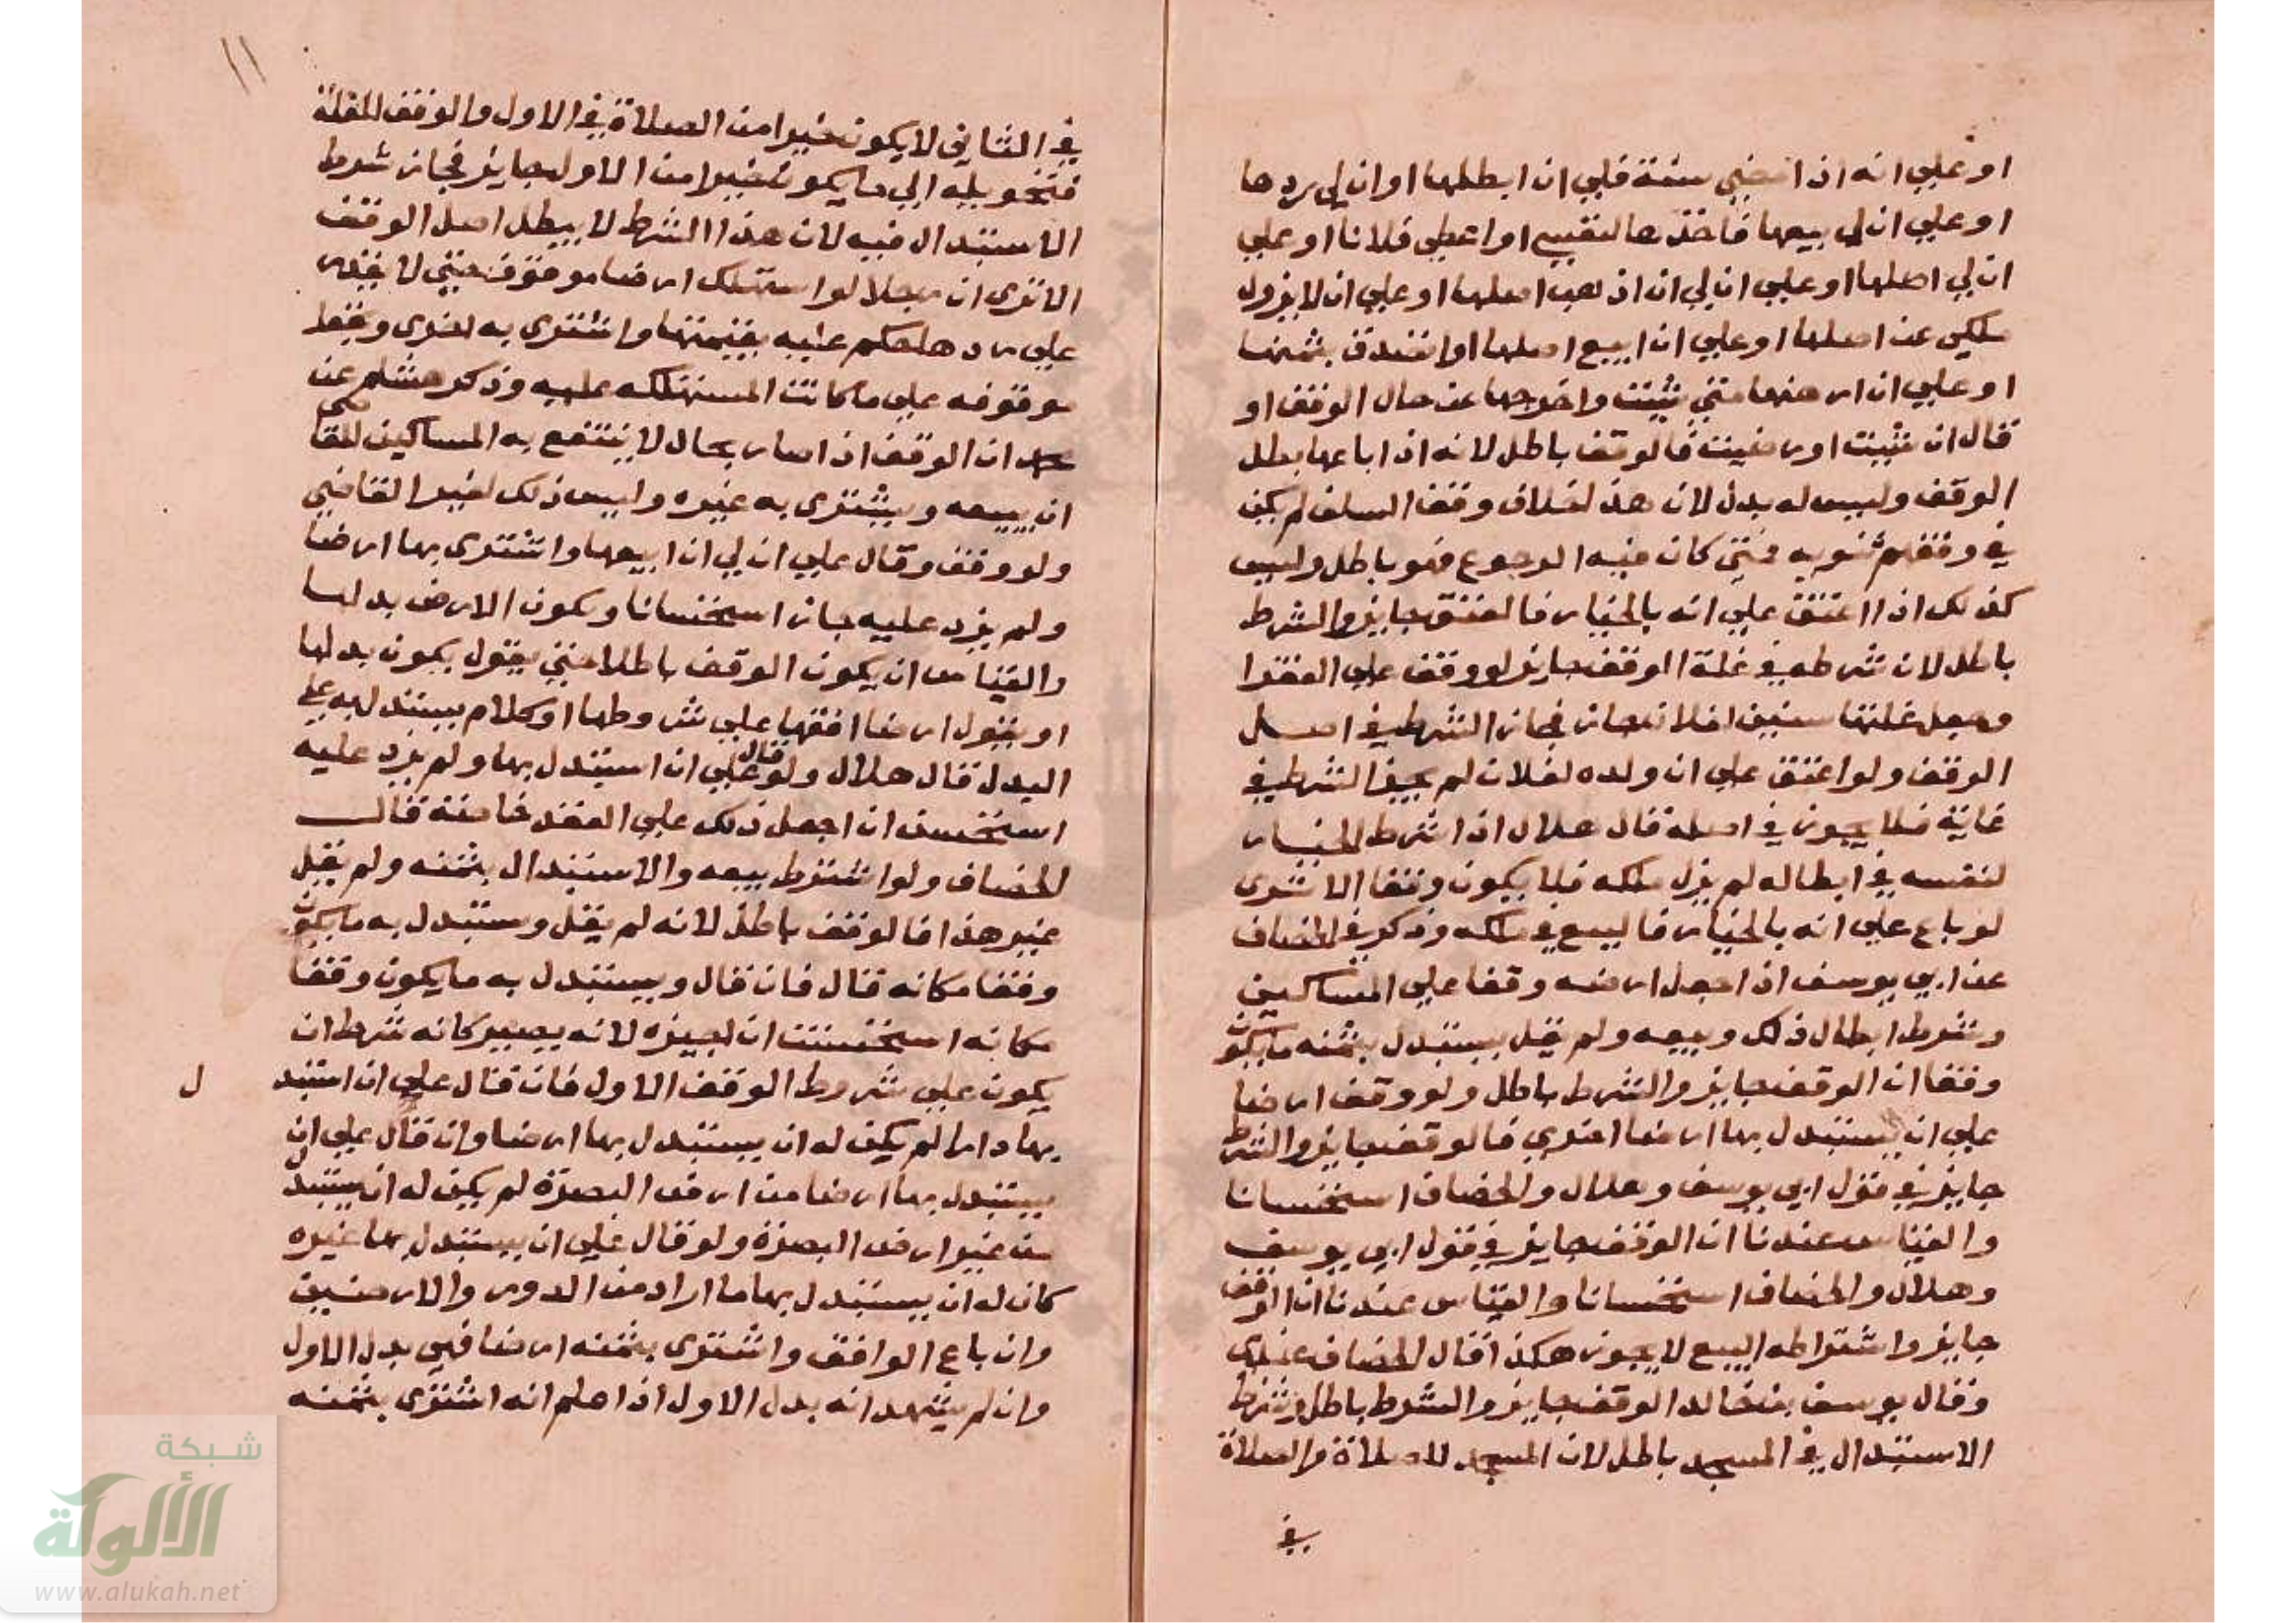 او علي انه اذا مضي سنة فلي ان ابطلها او ان لي ردها
او علي ان لي بيعها فاخذها لنفسي او اعطي فلانا او علي
ان لي اصلها او علي ان لي ان اذهب اصلها او علي ان لا يزول
ملكي عن اصلها او علي ان ابيع اصلها او اتصدق بثمنها
او علي ان ارهنها متي شيت واخرجها عن حال الوقف او
قال ان شيت او رضيت فالوقف باطل لانه اذا باعها بطل
الوقف وليس له بدل لان هذا خلاف وقف السلف لم يكن
في وقفهم مثنويه فمتي كان فيه الرجوع فهو باطل وليس
كذلك اذا اعتق علي انه بالخيار فالعتق جايز والشرط
باطل لان شرطه في غلة الوقف جايز لو وقف علي الفقرا
وجعل غلتها سنين لفلان جاز فجاز الشرط في اصل
الوقف ولو اعتق علي ان ولده لفلان لم يجز الشرط في
غايته فلا يجوز في اصله قال هلال اذا اشرط الخيار
لنفسه في ابطاله لم يزل ملكه فلا يكون وقفا الا ترى
لو باع علي انه بالخيار فالبيع في ملكه وذكر في الخصاف
عن ابي يوسف اذا جعل ارضه وقفا علي المساكين
وشرط ابطال ذلك وبيعه ولم يقل يستبدل بثمنه ما يكون
وقفا ان الوقف جايز والشرط باطل ولو وقف ارضا
علي ان يستبدل بها ارضا اخري فالوقف جايز والشرط
جايز في قول ابي يوسف وهلال والخصاف استحسانا
والقياس عندنا ان الوقف جايز في قول ابي يوسف
وهلال والخصاف استحسانا والقياس عندنا ان الوقف
جايز واشتراطه البيع لا يجوز هكذا قال الخصاف عندي
وقال يوسف بن خالد الوقف جايز والشرط باطل وشرط
الاستبدال في المسجد باطل لان المسجد للصلاة والصلاة
في
١١
في الثاني لا يكون خيرا من الصلاة في الاول والوقف للغلة
فتحويله الي ما يكون خيرا من الاول جايز فجاز شرط
الاستبدال فيه لان هذا الشرط لا يبطل اصل الوقف
الا ترى ان رجلا لو استهلك ارضا موقوفة حتي لا يقدر
علي ردها حكم عليه بقيمتها واشترى به اخرى وقفا
موقوفه علي ما كانت المستهلكه عليه وذكر هشام عن
محمد ان الوقف اذا صار بحال لا ينتفع به المساكين للقاضي
ان يبيعه ويشترى به غيره وليس ذلك لغير القاضي
ولو وقف وقال علي ان لي ان ابيعها واشترى بها ارضا
ولم يزد عليه جاز استحسانا ويكون الارض بدلها
والقياس ان يكون الوقف باطلا حتي يقول يكون بدلها
او يقول ارضا اقفها علي شروطها او كلام يستدل به علي
البدل قال هلال ولو قال علي ان استبدل بها ولم يزد عليه
استحسن ان اجعل ذلك علي العقد خاصة قال
الخصاف ولو اشترط بيعه والاستبدال بثمنه ولم يقل
غير هذا فالوقف باطل لانه لم يقل وستبدل به ما يكون
وقفا مكانه قال فان قال ويستبدل به ما يكون وقفا
مكانه استحسنت ان اجيزه لانه يصير كانه شرط ان
يكون علي شروط الوقف الاول فان قال علي ان استبد ل
بها دارا لم يكن له ان يستبدل بها ارضا وان قال علي ان
يستبدل بها ارضا من ارض البصرة لم يكن له ان يستبدل
من غير ارض البصرة ولو قال علي ان يستبدل بها غيره
كان له ان يستبدل بها ما اراد من الدور والارضين
وان باع الواقف واشترى بثمنه ارضا فهي بدل الاول
وان لم يشهد انه بدل الاول اذا علم انه اشترى بثمنه
شبكة
الألوكة
www.alukah.net